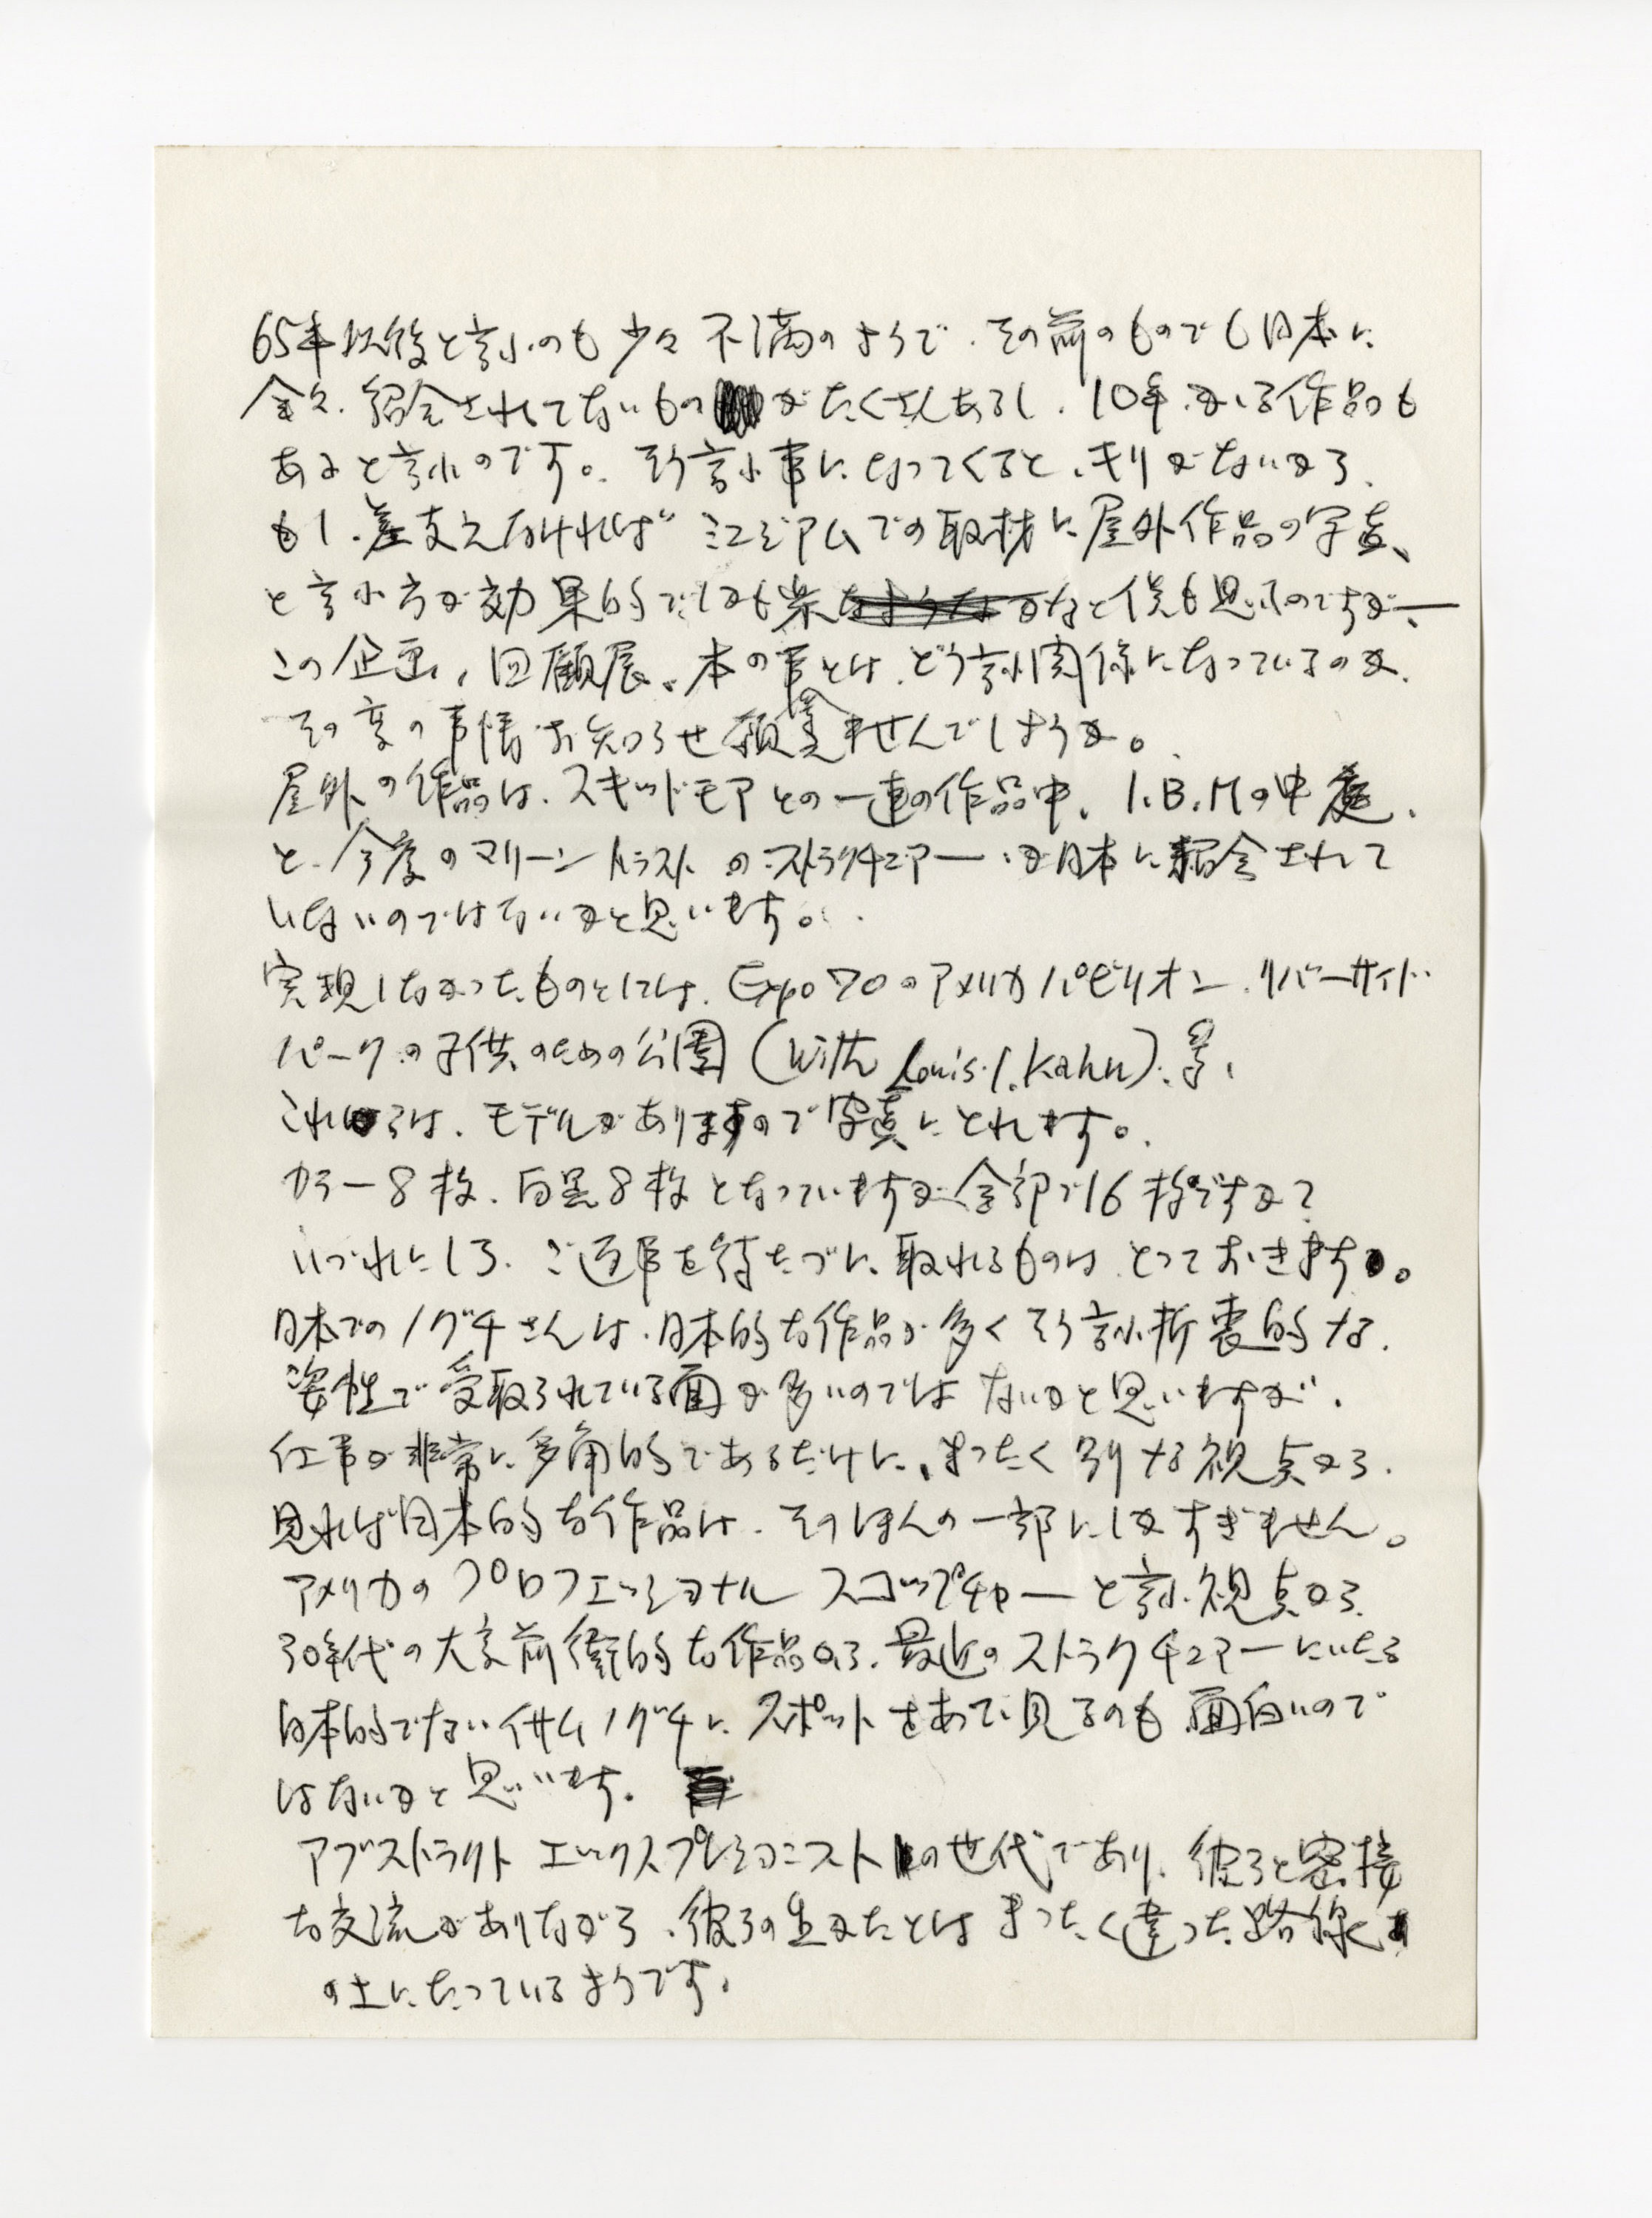 65年以後と言ふのも少々不満のようで、その前のものでも日本に
全々、紹介されてないものがたくさんあるし、10年かゝる作品も
あると言ふのです。そう言ふ事になってくると、キリがないから、
もし、差支えなければミュジアムでの取材に屋外作品の写真、
と言ふ方が効果的でしかも楽かなと僕も思ふのですが、ー
この企画、回顧展、本の事とは、どう言ふ関係になっているのか、
その辺の事情お知らせ願えませんでしょうか。
屋外の作品は、スキッドモアとの一連の作品中、I.B.Mの中庭、
と、今度のマリーントラストのストラクチュアー、が日本に紹介されて
いないのではないかと思います。
実現しなかったものとしては、Expo 70のアメリカパビリオン、リバーサイド
パークの子供のための公園 (with Louis.I.Kahn)、等、
これらは、モデルがありますので写真にとれます。
カラー8枚、白黒8枚となっていますが全部で16枚ですか？
いづれにしろ、ご返事を待たづに、取れるものは、とっておきます。
日本でのノグチさんは、日本的な作品が多くそう言ふ折衷的な、
姿性で受取られている面が多いのではないかと思いますが、
仕事が非常に多角的であるだけに、まったく別な視点から、
見れば日本的な作品は、そのほんの一部にしかすぎません。
アメリカのプロフェッショナル スコップチャーと言ふ視点から、
30年代の大変前衛的な作品から、最近のストラクチュアーにいたる
日本的でないイサムノグチに、スポットをあて、見るのも面白いので
はないかと思います。
アブストラクト エックスプレショニストの世代であり、彼らと密接
な交流がありながら、彼らの生きかたとはまったく違った路線
の上にたっているようです。